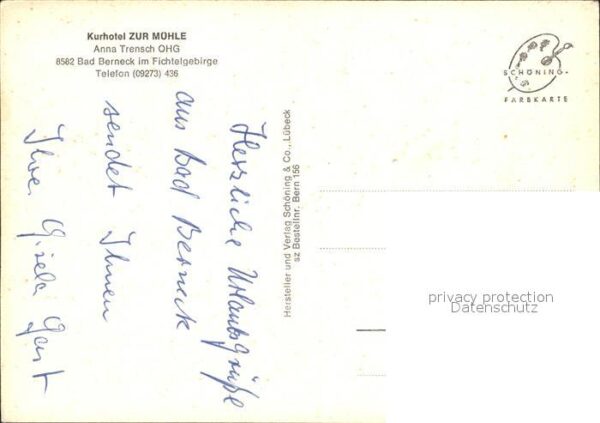 Kurhotel ZUR MÜHLE
Anna Trensch OHG
8582 Bad Berneck im Fichtelgebirge
Telefon (09273) 436
Herzliche Urlaubsgrüße
aus Bad Berneck
sendet Ihnen
Ihre Gisela Gast
Hersteller und Verlag Schöning & Co., Lübeck
sz Bestellnr. Bern 156
SCHÖNING-
FARBKARTE
privacy protection
Datenschutz